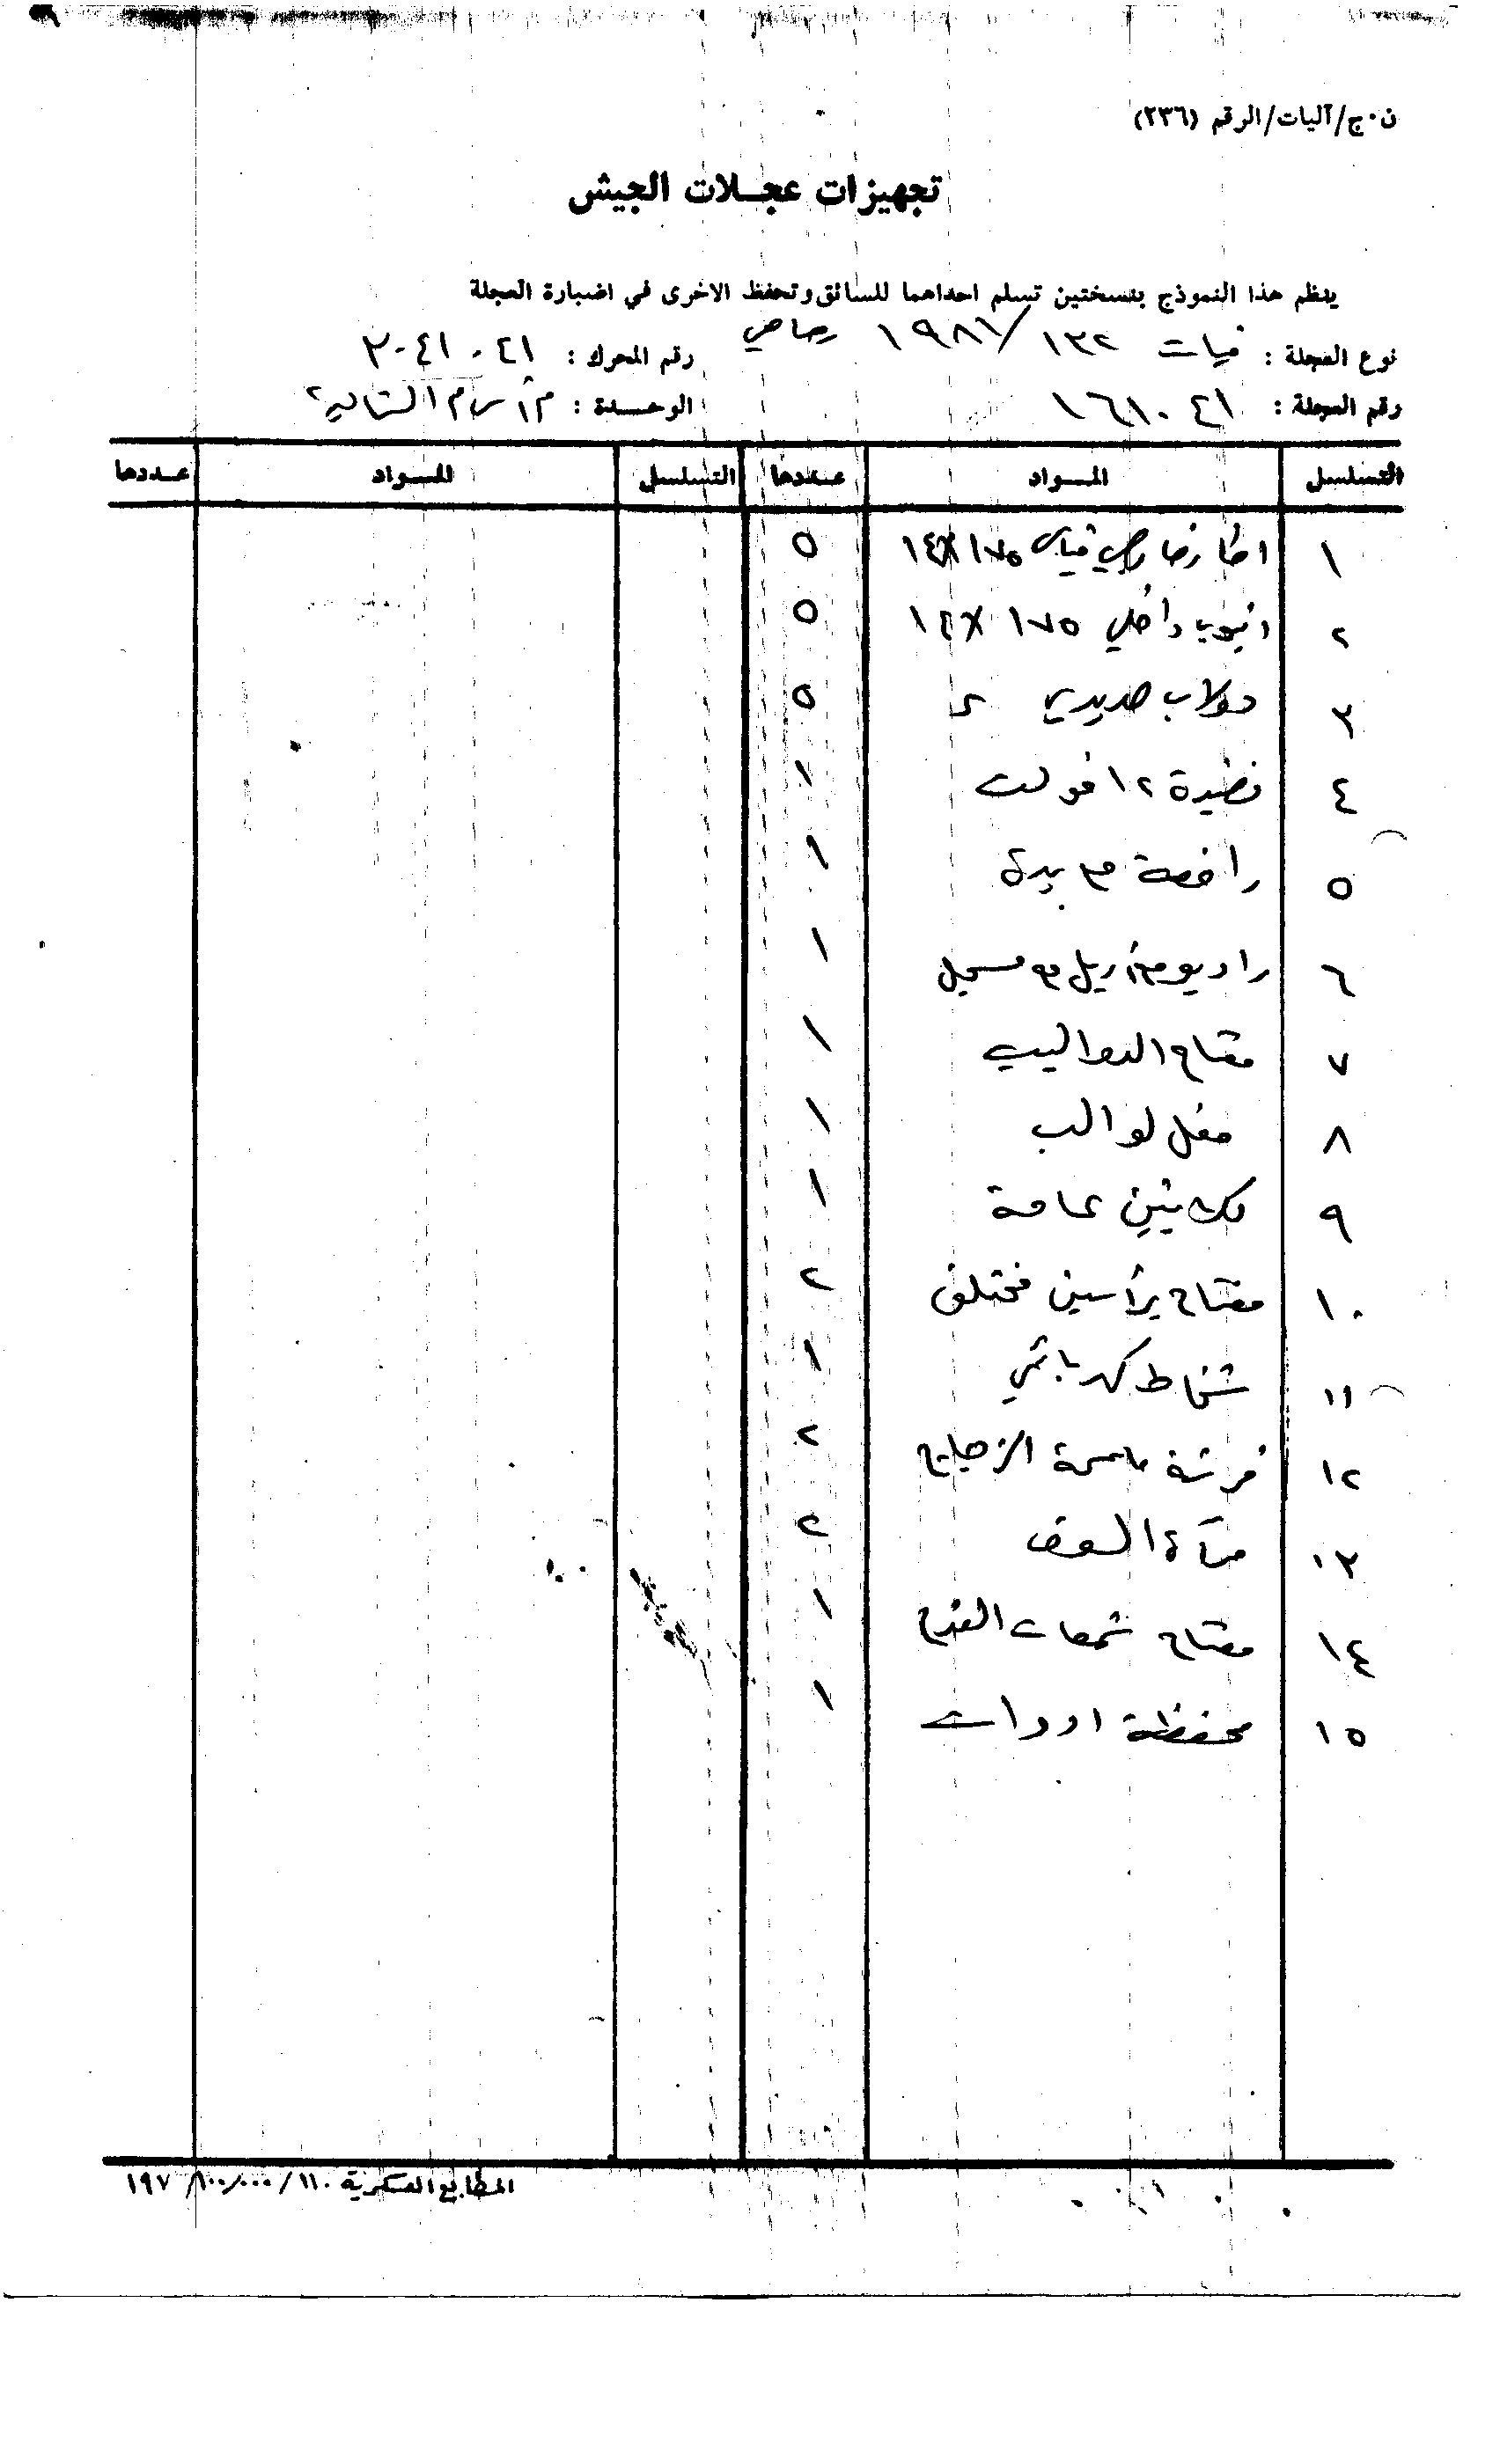 ن٠ج/آليات/الرقم (٢٣٦)
تجهيزات عجلات الجيش
ينظم هذا النموذج بنسختين تسلم احداهما للسائق وتحفظ الاخرى في اضبارة العجلة
نوع العجلة : فيات ١٣٢ /١٩٨١ رصاصي رقم المحرك : ٣٠٤١٠٤١
رقم العجلة : ١٦١٠٤١ الوحدة : م أ س م الثانية
التسلسل المواد عددها التسلسل المواد عددها
١ اطار خارجي قياس ١٧٥X١٤ ٥
٢ انبوب داخلي ١٧٥X١٤ ٥
٣ دولاب حديدي ٥
٤ نضيدة ١٢ فولت ١
٥ رافعة مع يدة ١
٦ راديو مع أريل مع مسجل ١
٧ مفتاح الدواليب ١
٨ مفل لوالب ١
٩ بكس نيتين عامة ١
١٠ مفتاح برأسين مختلف ٢
١١ شفاط كهربائي ١
١٢ فرشة ماسحة الزجاج ٢
١٣ مرآة ٢
١٤ مفتاح شمعات القدح ١
١٥ محفظة ادوات ١
المطابع العسكرية